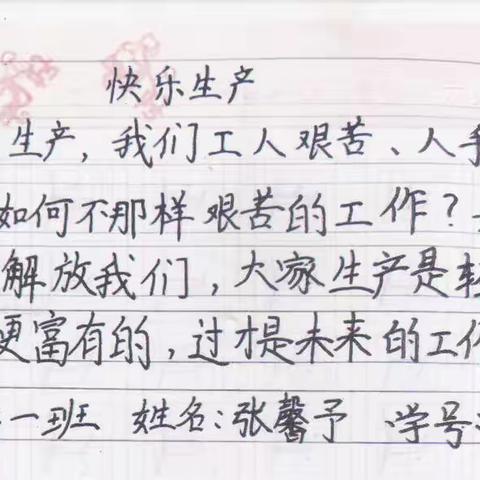 快乐生产
生产，我们工人艰苦、人手
如何不那样艰苦的工作？
解放我们，大家生产是轻
更富有的，过才是未来的工作
一班 姓名：张馨予 学号